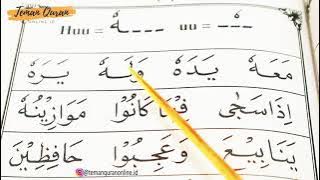 Teman Quran
ONLINE.ID
Huu = ـــهٗ uu = ـٗـ
مَعَهٗ يَدَهٗ وَلَهٗ يَرَهٗ
اِذَاسَجٰى فِيْمَا كَانُوْا مَوَازِيْنُهٗ
يَنَابِيْعَ وَعَجِبُوْا حَافِظِيْنَ
@temanquranonline.id